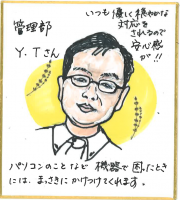 いつも優しく穏やかな
対応を
されるので
安心感
が!!
管理部
Y.Tさん
パソコンのことなど機器で困ったとき
には、まっさきにかけつけてくれます。